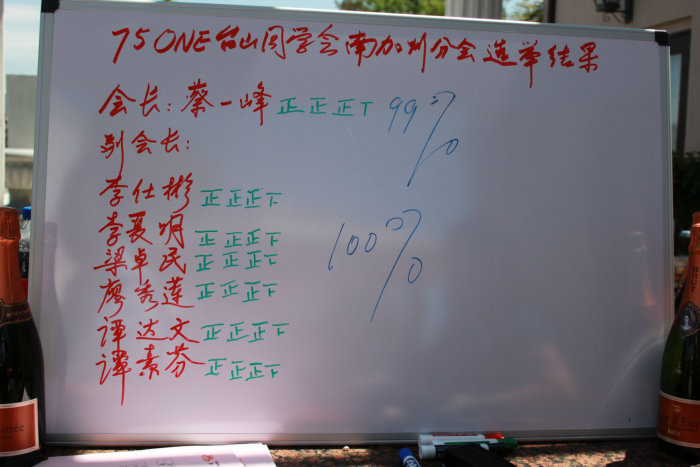 75 ONE 台山同学会南加州分会选举结果
会长: 蔡一峰 正正正丅 99%
副会长:
李仕彬 正正正下
李夏明 正正正下
梁卓民 正正正下
廖秀莲 正正正下
100%
谭达文 正正正下
谭素芬 正正正下